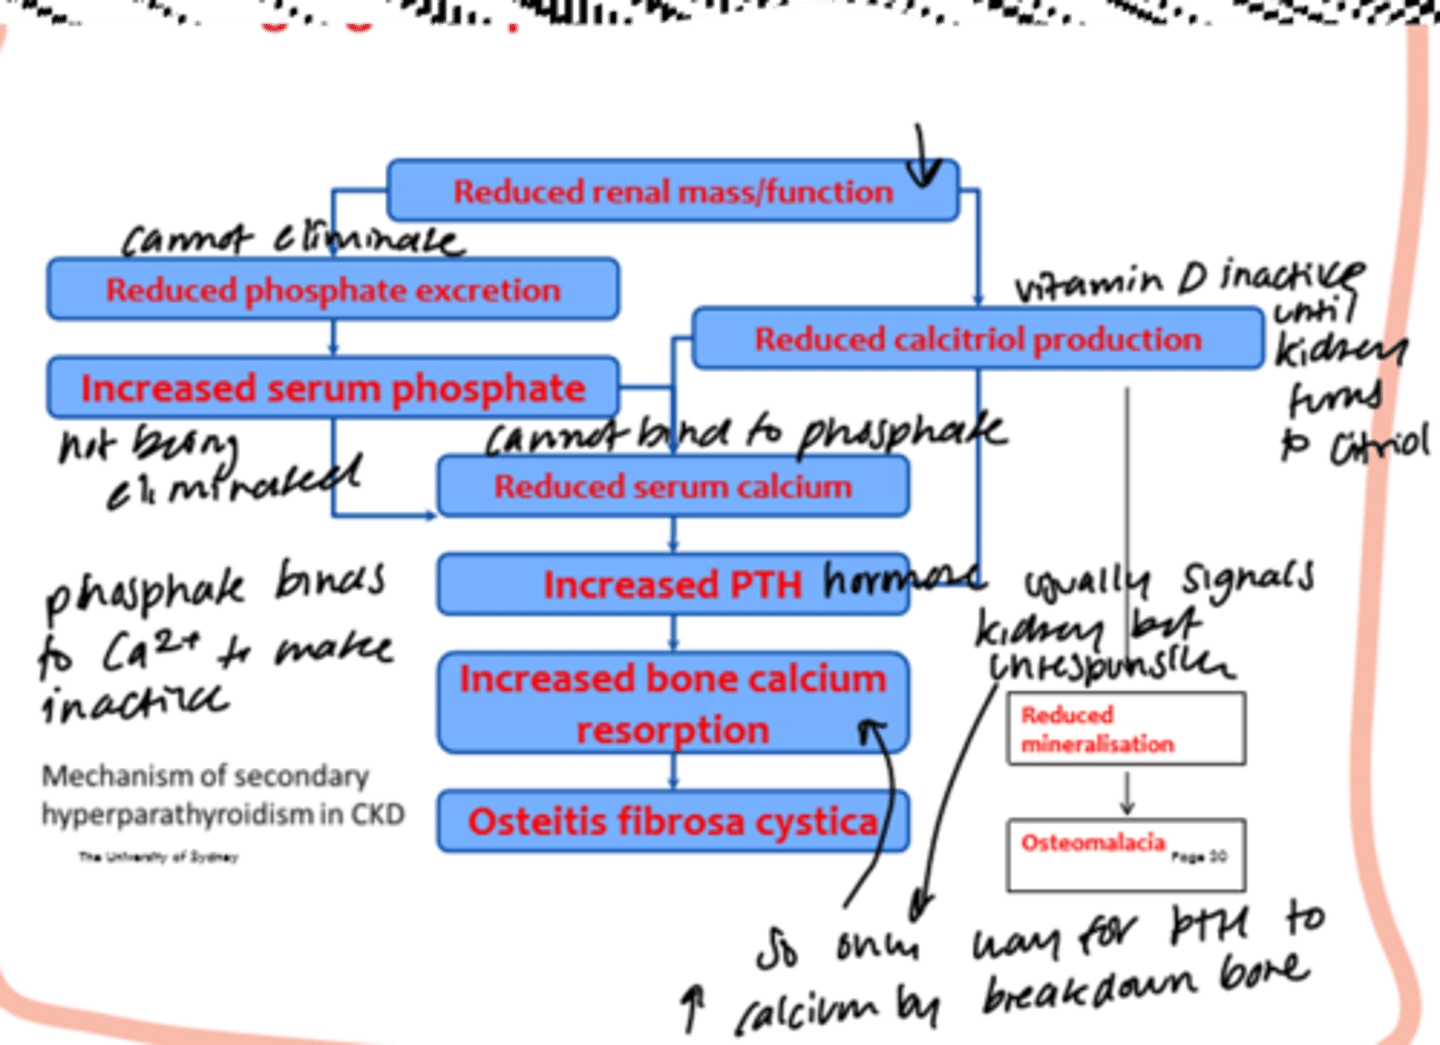 Reduced renal mass/function
cannot eliminate
Reduced phosphate excretion
vitamin D inactive
until
kidney
turns
to citriol
Reduced calcitriol production
Increased serum phosphate
not being
eliminated
cannot bind to phosphate
Reduced serum calcium
Increased PTH hormone
usually signals
kidney but
unresponsive
phosphate binds
to Ca2+ to make
inactive
Increased bone calcium
resorption
Reduced
mineralisation
Mechanism of secondary
hyperparathyroidism in CKD
The University of Sydney
Osteitis fibrosa cystica
Osteomalacia
Page 20
So only way for PTH to
↑ calcium by breakdown bone